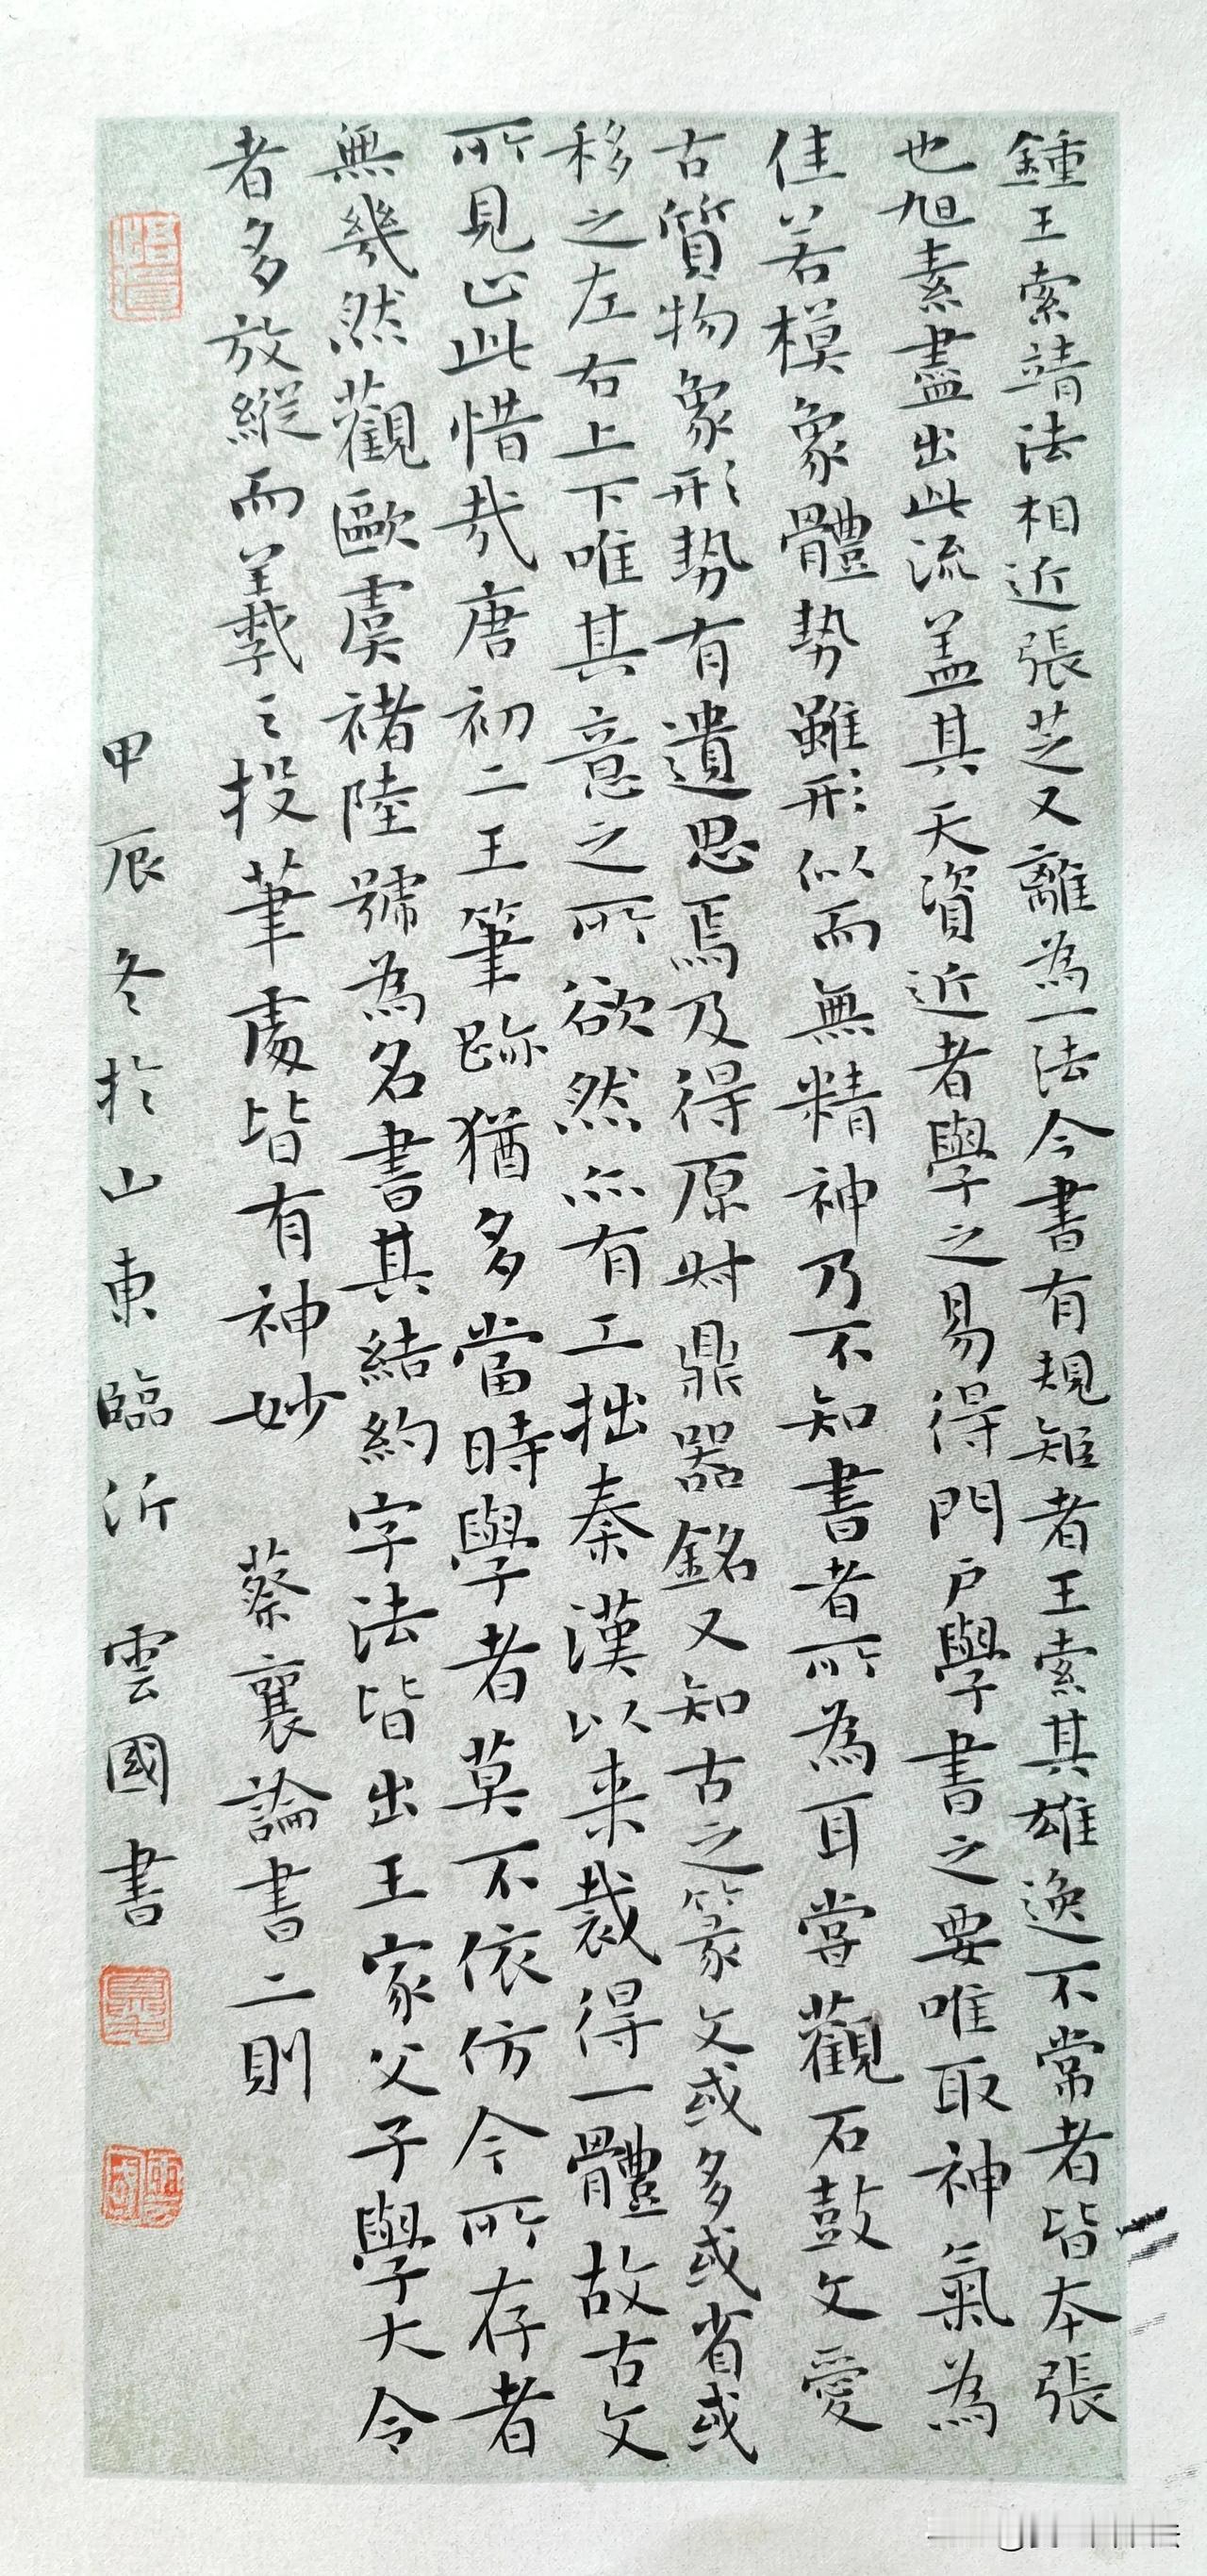 鍾王索靖法相近張芝又離為一法今書有規矩者王索其雄逸不常者皆本張
也旭素盡出此流盖其天資近者學之易得門户學書之要唯取神氣為
佳若模象體勢雖形似而無精神乃不知書者所為耳嘗觀石鼓文愛
古質物象形勢有遺思焉及得原叔鼎器銘又知古之篆文或多或省或
移之左右上下唯其意之所欲然亦有工拙秦漢以来裁得一體故古文
所見止此惜哉唐初二王筆跡猶多當時學者莫不依仿今所存者
無幾然觀歐虞褚陸號為名書其結約字法皆出王家父子學大令
者多放縱而羲之投筆處皆有神妙 蔡襄論書二則
甲辰冬於山東臨沂 雲國書
雲國